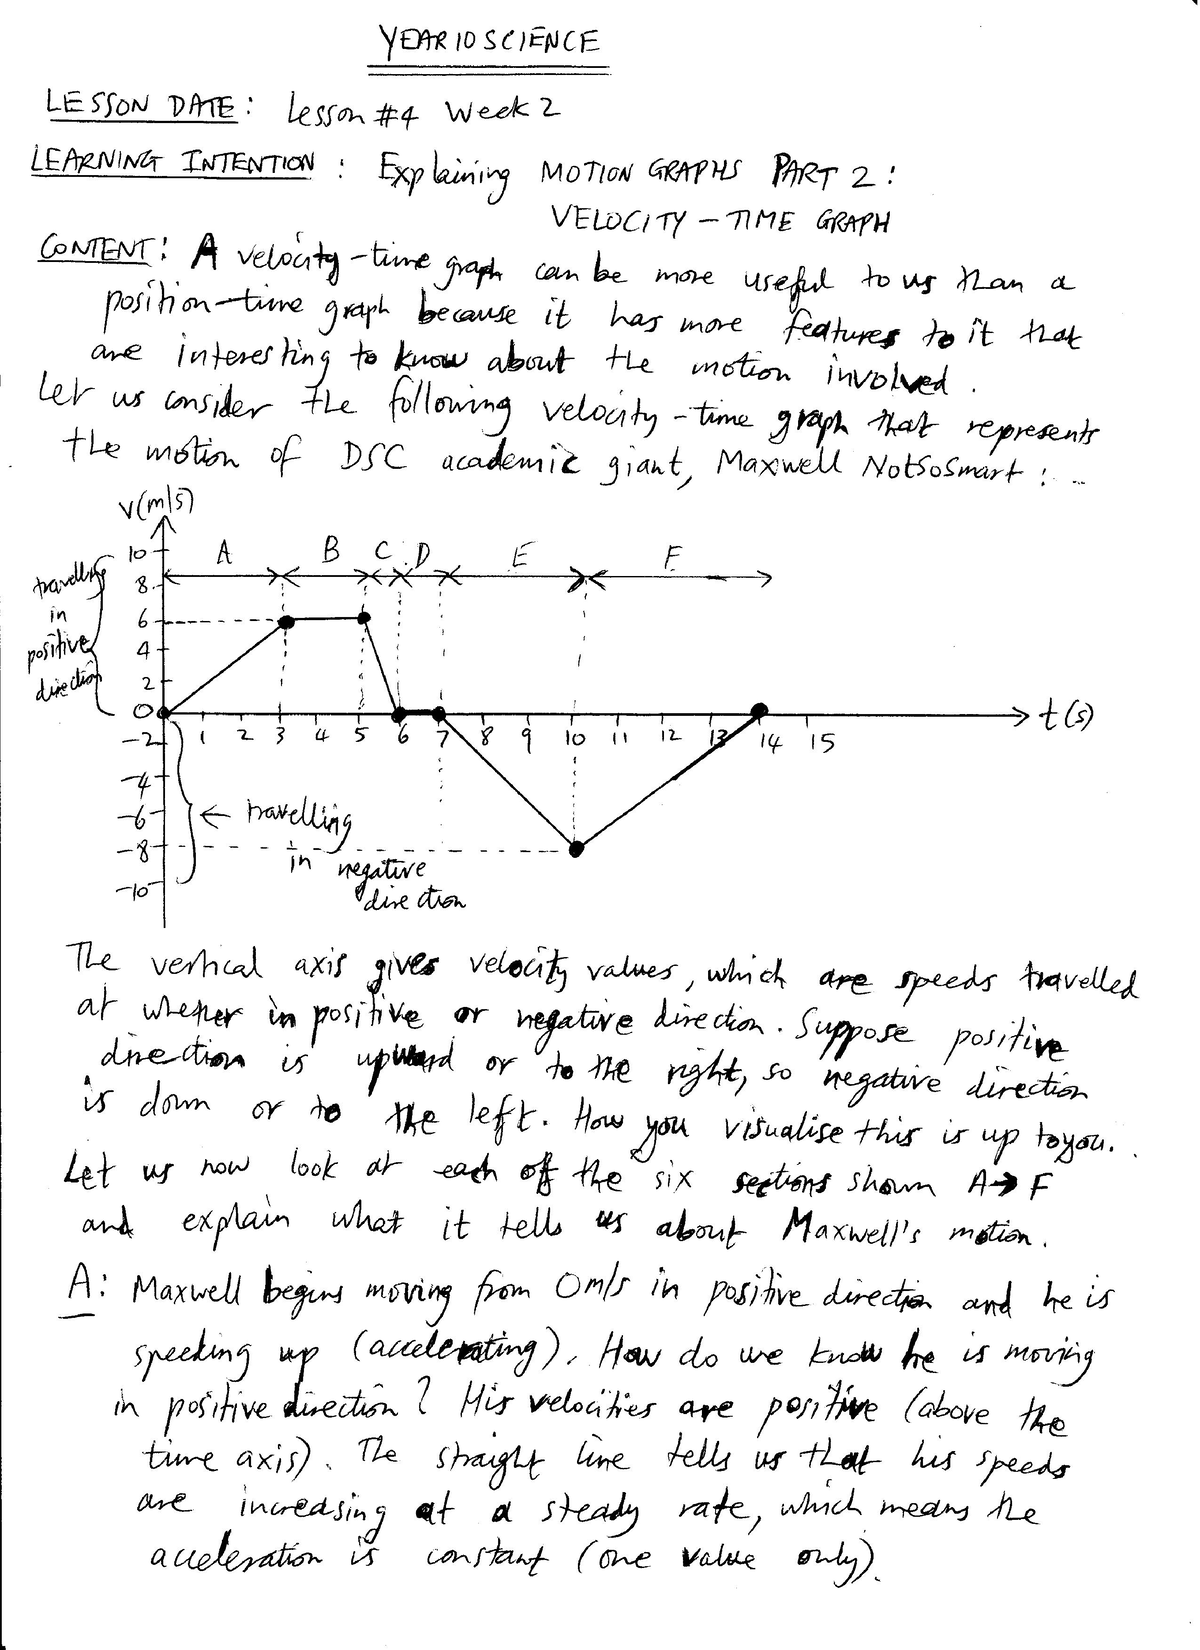 YEAR 10 SCIENCE
LESSON DATE: Lesson #4 Week 2
LEARNING INTENTION: Explaining MOTION GRAPHS PART 2:
VELOCITY-TIME GRAPH
CONTENT: A velocity-time graph can be more useful to us than a
position-time graph because it has more features to it that
are interesting to know about the motion involved.
Let us consider the following velocity-time graph that represents
the motion of DSC academic giant, Maxwell NotSoSmart: ...
v(m/s)
A B C D E F
10
8
6
4
2
0
-2
-4
-6
-8
-10
travelling
in
positive
direction
1 2 3 4 5 6 7 8 9 10 11 12 13 14 15
t(s)
← travelling
in negative
direction
The vertical axis gives velocity values, which are speeds travelled
at whether in positive or negative direction. Suppose positive
direction is upward or to the right, so negative direction
is down or to the left. How you visualise this is up to you.
Let us now look at each of the six sections shown A→F
and explain what it tells us about Maxwell's motion.
A: Maxwell begins moving from 0m/s in positive direction and he is
speeding up (accelerating). How do we know he is moving
in positive direction? His velocities are positive (above the
time axis). The straight line tells us that his speeds
are increasing at a steady rate, which means the
acceleration is constant (one value only).